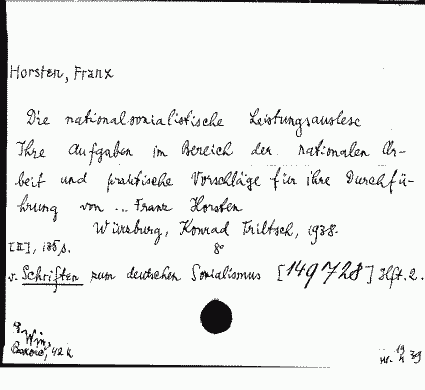 Horsten, Franz
Die nationalsozialistische Leistungsauslese
Ihre Aufgaben im Bereich der nationalen Ar-
beit und praktische Vorschläge für ihre Durchfü-
hrung von ... Franz Horsten
Würzburg, Konrad Triltsch, 1938.
[II], 135 s. 8°
v. Schriften zum deutschen Sozialismus [149728] Hft. 2.
42 k
39